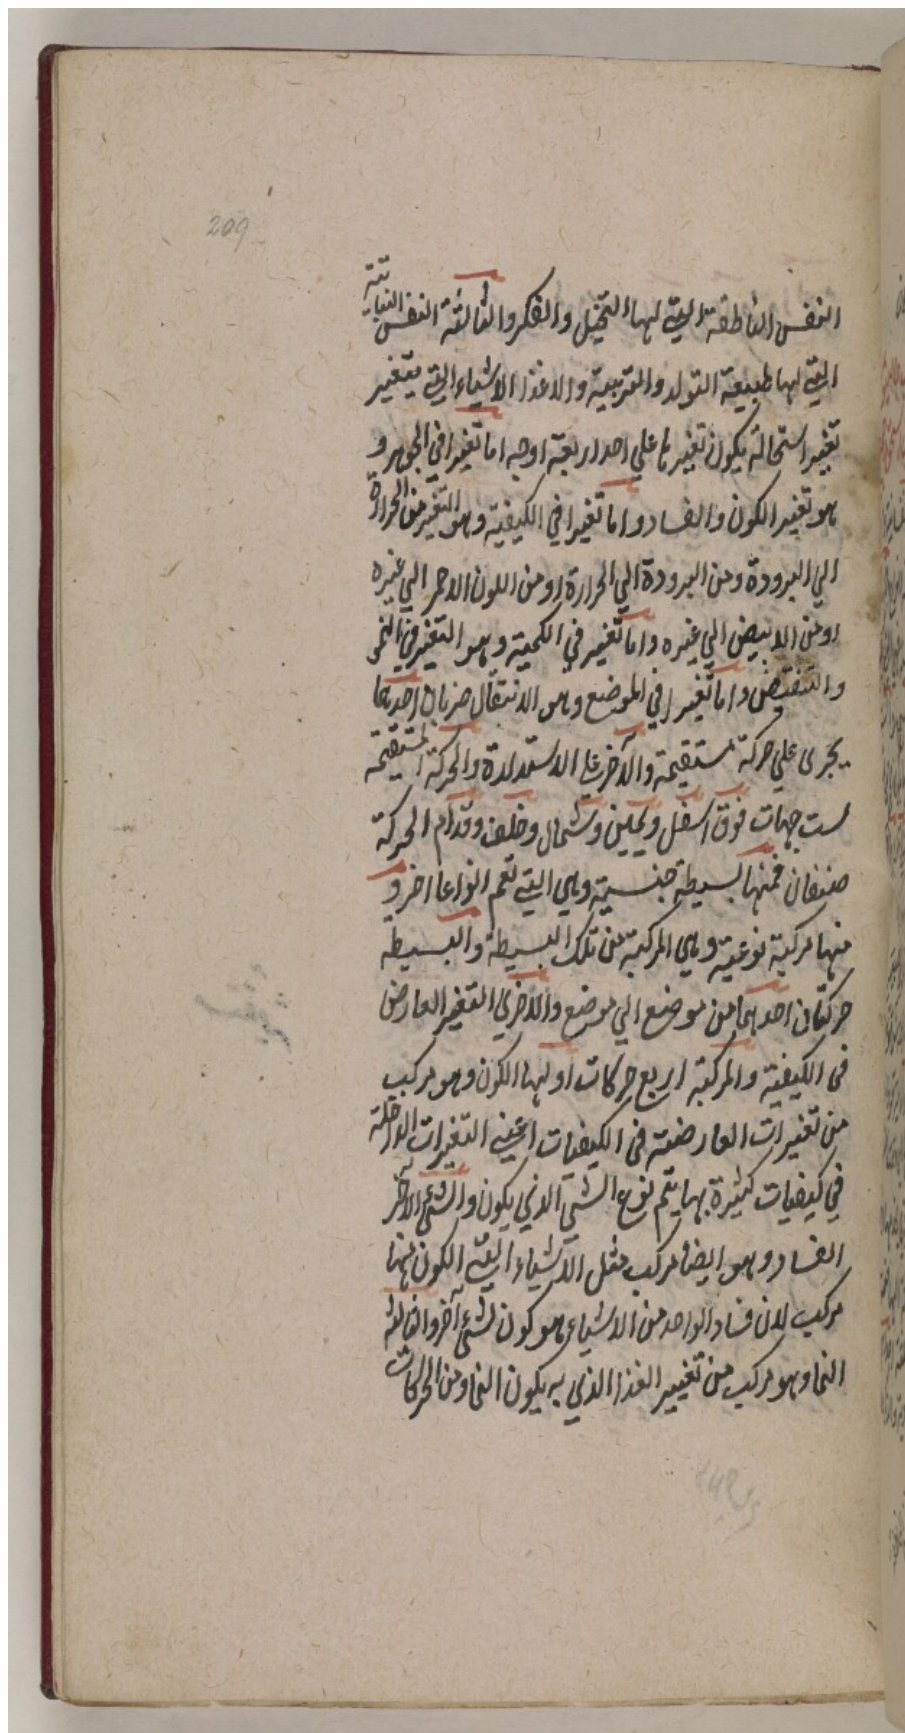 209
النفس الناطقة التي لها التخيل والفكر والثالثة النفس النباتية
التي لها طبيعة التولد والتربية والاغذا الاشياء التي يتغير
تغيير استحالة يكون تغييرها علي احد اربعة اوجه اما تغيرا في الجوهر و
هو تغيير الكون والفساد واما تغيرا في الكيفية وهو التغير من الحرارة
الي البرودة ومن البرودة الي الحرارة او من اللون الاحمر الي غيره
او من الابيض الي غيره واما تغير في الكمية وهو التغير في النمو
والتنقيص واما تغيرا في الموضع وهو الانتقال ضربان احدهما
يجرى علي حركة مستقيمة والآخر على الاستدارة والحركة المستقيمة
ست جهات فوق اسفل ويمين وشمال وخلف وقدام الحركة
صنفان فمنها بسيطة جنسية وهي التي تعم انواعا اخر و
منها مركبة نوعية وهي المركبة من تلك البسيطة والبسيطة
حركتان احدهما من موضع الي موضع والاخرى التغير العارض
فى الكيفية والمركبة اربع حركات اولها الكون وهو مركب
من تغيرات العارضة فى الكيفيات اعني التغيرات الداخلة
في كيفيات كثيرة بها يتم نوع الشي الذي يكون والشئ الآخر
الفساد وهو ايضا مركب مثل الاشياء التي الكون منها
مركب لان فساد الواحد من الاشياء هو كون لشئ آخر والثالثة
النما وهو مركب من تغيير الغذا الذي به يكون النما ومن الحركات